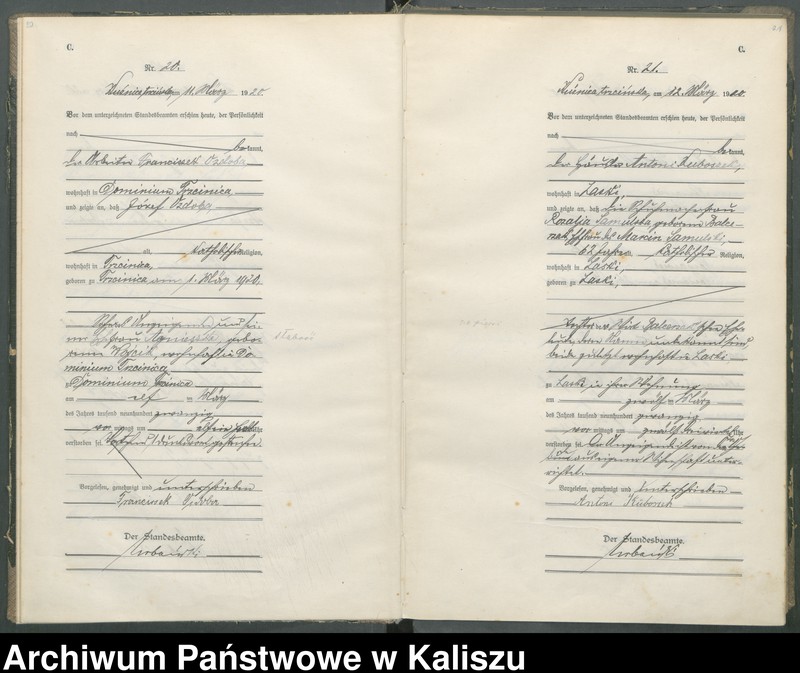 C.
Nr. 20.
Kuźnica trzcińska, am 11. März 1920.
Vor dem unterzeichneten Standesbeamten erschien heute, der Persönlichkeit
nach
bekannt,
der Arbeiter Franciszek Ozdoba
wohnhaft in Dominium Trzcinica
und zeigte an, daß Józef Ozdoba
alt, katholischer Religion,
wohnhaft in Trzcinica,
geboren zu Trzcinica am 1. März 1920,
Sohn des Anzeigenden und sei-
ner Ehefrau Agnieszka, gebo-
renen Wójcik, wohnhaft in Do-
minium Trzcinica
zu Dominium Trzcinica
am elf ten März
des Jahres tausend neunhundert zwanzig
vor mittags um Uhr
verstorben sei.
Vorgelesen, genehmigt und unterschrieben
Franciszek Ozdoba
Der Standesbeamte.
C.
Nr. 21.
Kuźnica trzcińska, am 12. März 1920.
Vor dem unterzeichneten Standesbeamten erschien heute, der Persönlichkeit
nach
bekannt,
der Häusler Antoni
wohnhaft in Laski,
und zeigte an, daß die
Rozalja Samulska geborene Balce-
rzak, Ehefrau des Marcin Samulski,
62 Jahre alt, katholischer Religion,
wohnhaft in Laski,
geboren zu Laski,
beide zuletzt wohnhaft in Laski
zu Laski in ihrer Wohnung
am zwölften März
des Jahres tausend neunhundert zwanzig
vor mittags um Uhr
verstorben sei. Der Anzeigende ist von
aus eigener Wissenschaft unter-
richtet.
Vorgelesen, genehmigt und unterschrieben
Antoni
Der Standesbeamte.
Archiwum Państwowe w Kaliszu